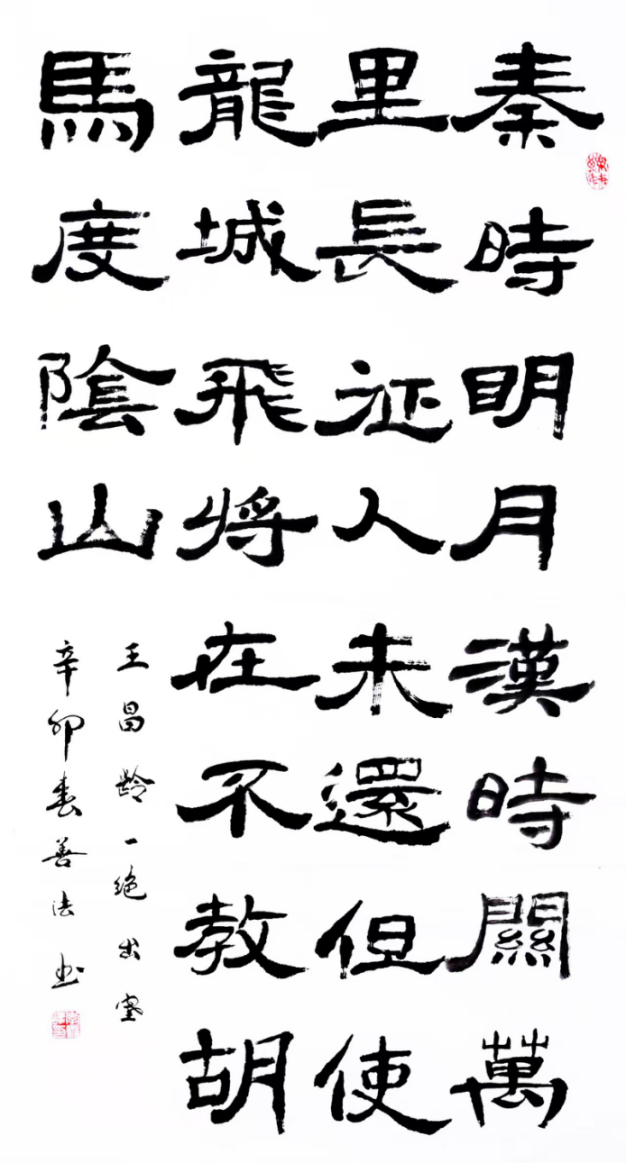 秦時明月漢時關萬
里長征人未還但使
龍城飛將在不教胡
馬度陰山
王昌齡一絕出塞
辛卯春善法書